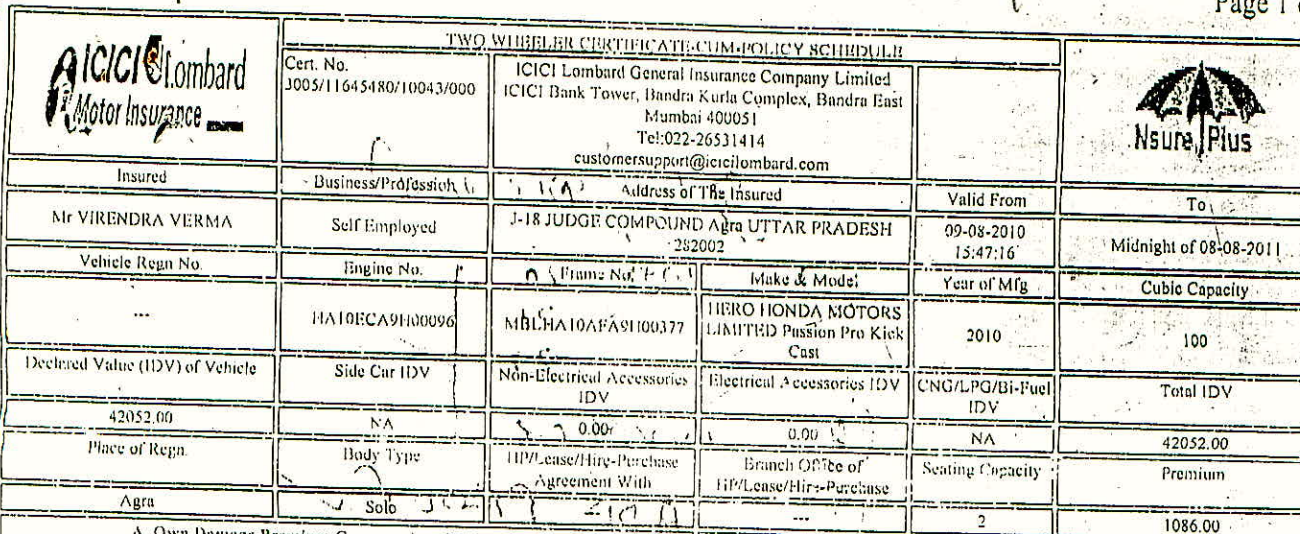 Page 1
ICICI Lombard
Motor Insurance
TWO WHEELER CERTIFICATE-CUM-POLICY SCHEDULE
Cert. No.
3005/11645480/10043/000
ICICI Lombard General Insurance Company Limited
ICICI Bank Tower, Bandra Kurla Complex, Bandra East
Mumbai 400051
Tel:022-26531414
customersupport@icicilombard.com
Nsure Plus
Insured Business/Profession Address of The Insured Valid From To
Mr VIRENDRA VERMA Self Employed J-18 JUDGE COMPOUND Agra UTTAR PRADESH 282002 09-08-2010 15:47:16 Midnight of 08-08-2011
Vehicle Regn No. Engine No. Frame No. Make & Model Year of Mfg Cubic Capacity
--- HA10ECA9H00096 MBLHA10AFA9H00377 HERO HONDA MOTORS LIMITED Passion Pro Kick Cast 2010 100
Declared Value (IDV) of Vehicle Side Car IDV Non-Electrical Accessories IDV Electrical Accessories IDV CNG/LPG/Bi-Fuel IDV Total IDV
42052.00 NA 0.00 0.00 NA 42052.00
Place of Regn. Body Type HP/Lease/Hire-Purchase Agreement With Branch Office of HP/Lease/Hire-Purchase Seating Capacity Premium
Agra Solo --- 2 1086.00
A. Own Damage